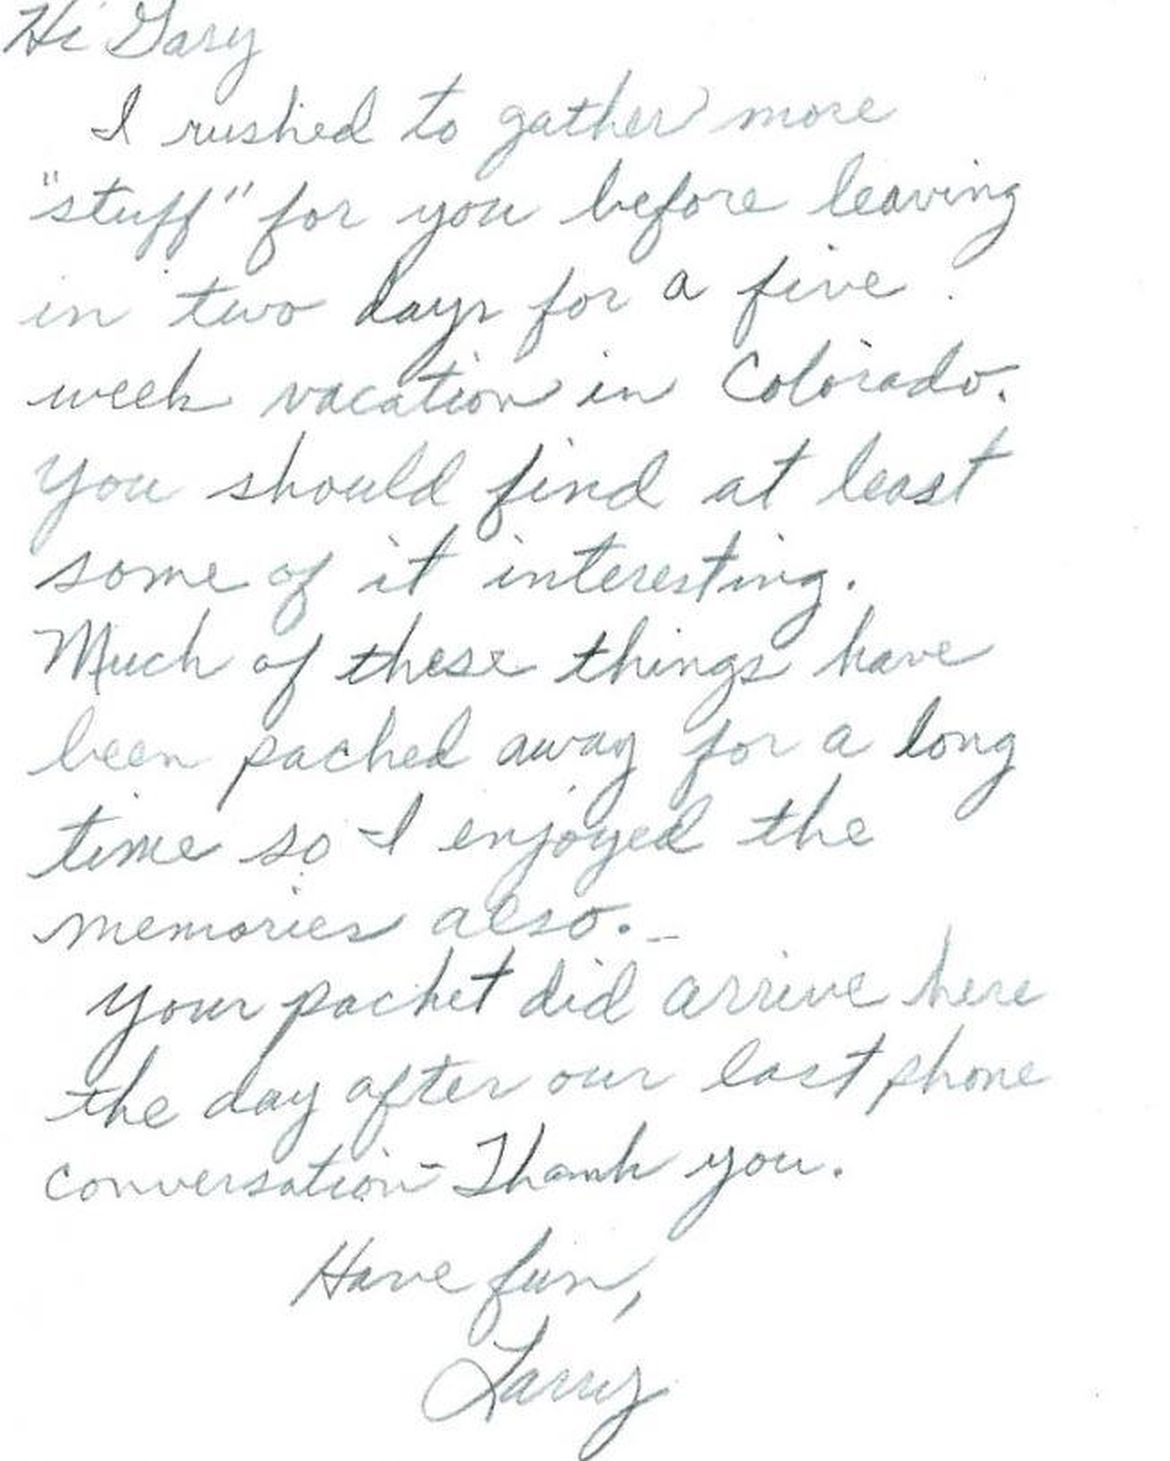 Hi Gary
I rushed to gather more
"stuff" for you before leaving
in two days for a five
week vacation in Colorado.
You should find at least
some of it interesting.
Much of these things have
been packed away for a long
time so I enjoyed the
memories also.
Your packet did arrive here
the day after our last phone
conversation - Thank you.
Have fun,
Larry